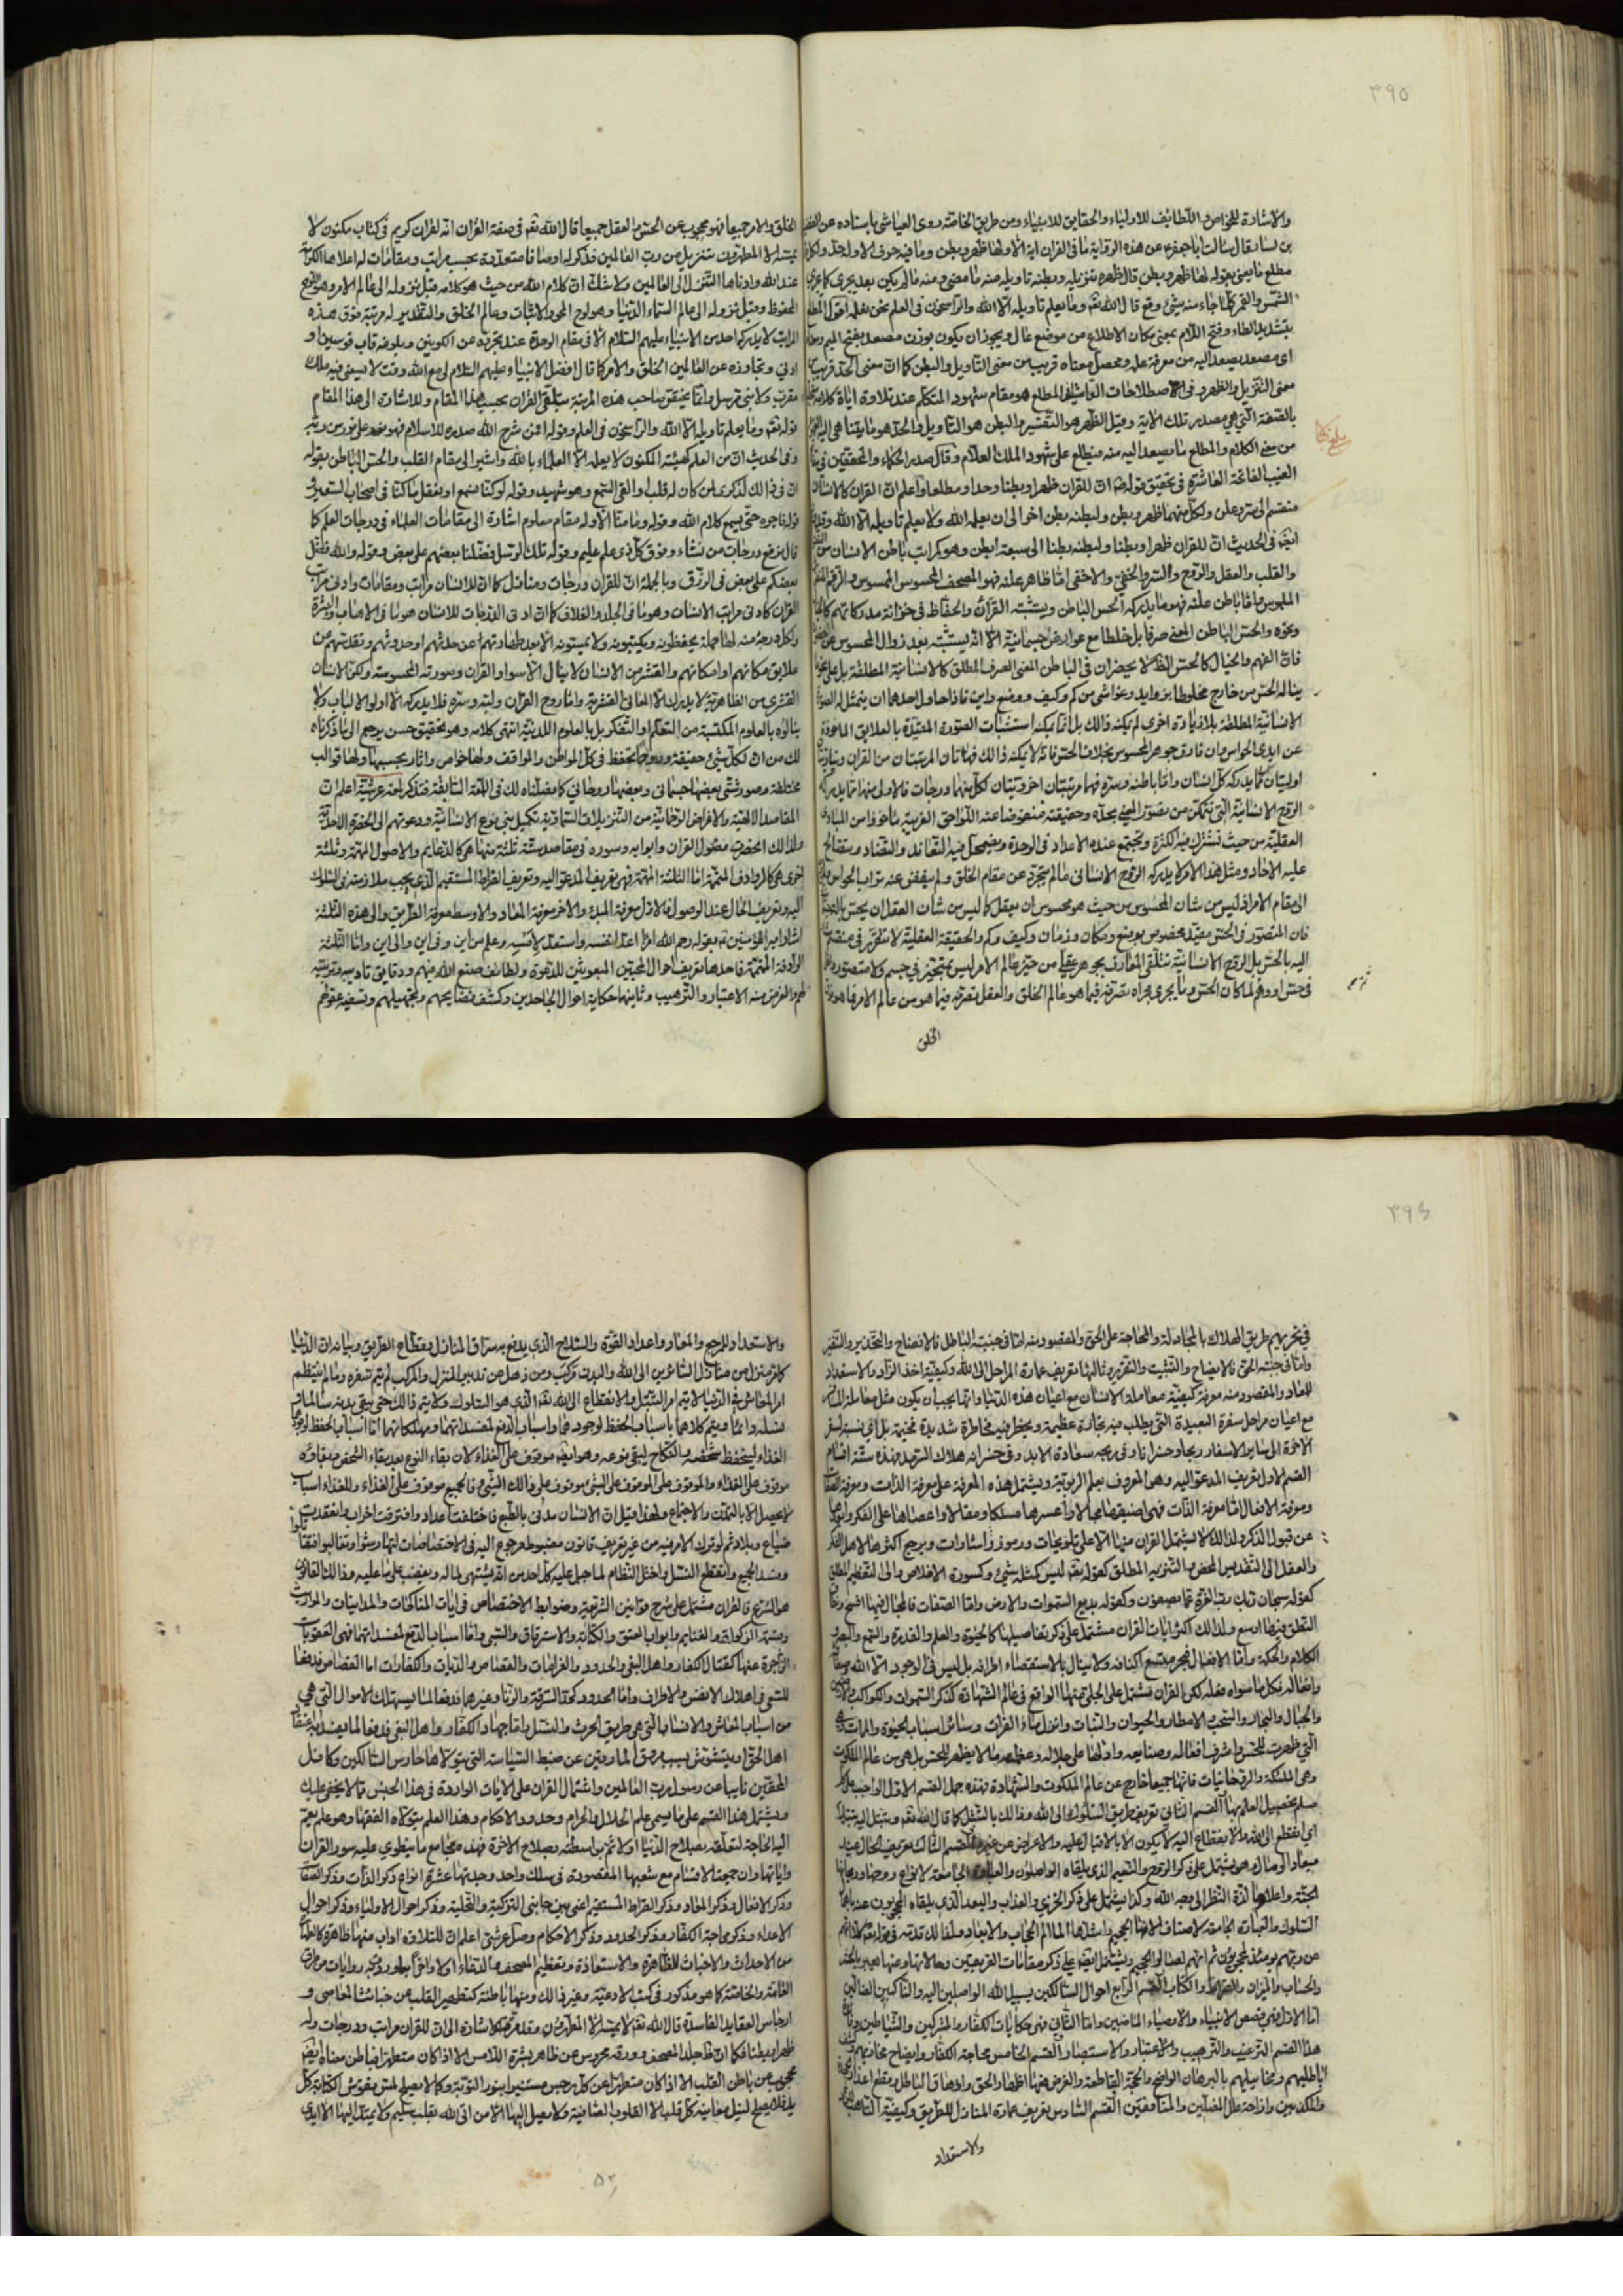 ٣٩٥
والاشارة للخواص واللطائف للاولياء والحقايق للانبياء ومن طريق الخاصة روى العياشى باسناده عن الفضيل
بن يسار قال سالت ابا جعفر ع عن هذه الرواية ما فى القران اية الا ولها ظهر وبطن وما فيه حرف الا وله حد ولكل
مطلع ما يعنى بقوله لها ظهر وبطن قال ظهره تنزيله وبطنه تاويله منه ما مضى ومنه ما لم يكن بعد يجرى كما يجرى
الشمس والقمر كلما جاء منه شيئ وقع قال الله تعه وما يعلم تاويله الا الله والراسخون فى العلم نحن نعلمه اقول المطلع
بتشديد الطاء وفتح اللام بمعنى مكان الاطلاع من موضع عال ويجوز ان يكون بوزن مصعد بفتح الميم ومعناه
اى مصعد يصعد اليه من معرفة علمه ومحصل معناه قريب من معنى التاويل والبطن كما ان معنى الحد قريب من
معنى التنزيل والظهر وفى الاصطلاحات القاشانى المطلع هو مقام شهود المتكلم عند تلاوة اياة كلامه
بالصفة التى هى مصدر تلك الاية وقيل الظهر هو التفسير والبطن هو التاويل والحد هو ما يتناهى اليه الفهوم
من معنى الكلام والمطلع ما يصعد اليه منه فيطلع على شهود الملك العلام وقال صدر الحكماء والمحققين فى مفاتيح
الغيب الفاتحة العاشرة فى تحقيق قوله ص ان للقران ظهرا وبطنا وحدا ومطلعا واعلم ان القران كالانسان
منقسم الى سر وعلن ولكل منهما ظهر وبطن ولبطنه بطن اخر الى ان يعلمه الله ولا يعلم تاويله الا الله وقد ورد
ايضا فى الحديث ان للقران ظهرا وبطنا ولبطنه بطنا الى سبعة ابطن وهو كمراتب باطن الانسان من النفس
والقلب والعقل والروح والسر والخفى والاخفى اما ظاهر علنه فهو المصحف المحسوس الملموس والرقم
الملموس واما باطن علنه فهو ما يدركه الحس الباطن ويستثبته القراء والحفاظ فى خزانة مدركاتهم كالخيال
ونحوه والحس الباطن المعنى صرفا بل خلطا مع عوارض جسمانية الا انه يستثبته بعد زوال المحسوس عن
فان الفهم والخيال كالحس الظاهر لا يحضران فى الباطن المعنى الصرف المطلق كالانسانية المطلقة بل على نحو ما
يناله الحس من خارج مخلوطا بزوايد وغواشى من كم وكيف ووضع واين فاذا حاول احدهما ان يتمثل له الصورة
الانسانية المطلقة بلا زيادة اخرى لم يمكنه ذالك بل انما يمكنه استثبات الصورة المقيدة بالعلايق الماخوذة
عن ايدى الحواس وان فارق جوهر المحسوس بخلاف الحس فانه لا يمكنه ذالك فهاتان المرتبتان من القران دنياويتان
اوليتان مما يدركه كل انسان واما باطنه وسره فهما مرتبتان اخرويتان لكل منهما درجات فالاولى منهما مما يدركه
الروح الانسانية التى تتمكن من تصور المعنى بحده وحقيقته منفوضا عنه اللواحق الغريبة ماخوذا من المبادى
العقلية من حيث تشترك فيه الكثرة وتجتمع عنده الاعداد فى الوحدة ويضمحل فيه التعاند والتضاد ويتصالح
عليه الاحاد ومثل هذا الامر لا يدركه الروح الانسانى ما لم يتجرد عن مقام الخلق ولم ينفض عنه تراب الحواس ولم يرجع
الى مقام الامر اذ ليس من شان المحسوس من حيث هو محسوس ان يعقل كما ليس من شان العقل ان يحس بالة جسمانية
فان المتصور فى الحس مقيد مخصوص بوضع ومكان وزمان وكيف وكم والحقيقة العقلية لا تتقرر فى منقسم
اليه بالحس بل الروح الانسانية تتلقى المعارف بجوهر عقلى من حيز عالم الامر ليس بمتحيز فى جسم ولا متصور داخل
فى حس او وهم لما كان الحس وما يجرى مجراه تصرفه فيما هو عالم الخلق والعقل تصرفه فيما هو من عالم الامر فما هو فوق
الخلق
الخلق والامر جميعا فهو محجوب عن الحس والعقل جميعا قال الله تعه فى صفة القران انه لقران كريم فى كتاب مكنون لا
يمسه الا المطهرون تنزيل من رب العالمين فذكر له اوصافا متعددة بحسب مراتب ومقامات له اعلاها الكرامة
عند الله وادناها التنزل الى العالمين ولا شك ان كلام الله من حيث هو كلامه قبل نزوله الى عالم الامر وهو اللوح
المحفوظ وقبل نزوله الى عالم السماء الدنيا وهو لوح المحو والاثبات وعالم الخلق والتقدير له مرتبة فوق هذه
المراتب لا يدركها احد من الانبياء عليهم السلام الا فى مقام الوحدة عند تجرده عن الكونين وبلوغه قاب قوسين او
ادنى وتجاوزه عن العالمين الخلق والامر كما قال افضل الانبياء عليهم السلام لى مع الله وقت لا يسعنى فيه ملك
مقرب ولا نبى مرسل وانما يختص صاحب هذه المرتبة بتلقى القران بحسب هذا المقام وللاشارة الى هذا المقام
قوله تعه وما يعلم تاويله الا الله والراسخون فى العلم وقوله افمن شرح الله صدره للاسلام فهو على نور من ربه
وفى الحديث ان من العلم كهيئة المكنون لا يعلمه الا العلماء بالله واشير الى مقام القلب والحس الباطن بقوله
ان فى ذالك لذكرى لمن كان له قلب او القى السمع وهو شهيد وقوله لو كنا نسمع او نعقل ما كنا فى اصحاب السعير و
قوله فاجره حتى يسمع كلام الله وقوله وما منا الا وله مقام معلوم اشارة الى مقامات العلماء فى درجات العلم كما
قال نرفع درجات من نشاء وفوق كل ذى علم عليم وقوله تلك الرسل فضلنا بعضهم على بعض وقوله والله فضل
بعضكم على بعض فى الرزق وبالجملة ان للقران درجات ومنازل كما ان للانسان مراتب ومقامات وادنى مراتب
القران كادنى مراتب الانسان وهو ما فى الجلد والغلاف كما ان ادنى الدرجات للانسان هو ما فى الاهاب والبشرة
ولكل درجة منه لها حملة يحفظونه ويكتبونه ولا يمسونه الا بعد طهارتهم عن حدثهم او حدوثهم وتقدسهم عن
علايق مكانهم او امكانهم والقشر من الانسان لا ينال الا سواد القران وصورته المحسوسة ولكن الانسان
القشرى من الظاهرية لا يدرك الا المعانى القشرية واما روح القران ولبه وسره فلا يدركه الا اولوا الالباب ولا
ينالوه بالعلوم المكتسبة من التعلم او التفكر بل بالعلوم اللدنية انتهى كلامه وهو تحقيق حسن يرجع الى ما ذكرناه
لك من ان لكل شيئ حقيقة وروحا تحفظ فى كل المواطن والمواقف ولها خواص واثار بحسبها ولها قوالب
مختلفة وصور شتى بعضها جسمانى وبعضها روحانى كما فصلناه لك فى اللمعة السابقة فتذكر لمعة عرشية اعلم ان
المقاصد الالهية والاغراض الرحمانية من التنزيلات السماوية تكميل بنى نوع الانسانية ودعوتهم الى الحضرة الاحدية
ولذالك انحصرت فصول القران وابوابه وسوره فى مقاصد ستة ثلثة منها هى كالدعايم والاصول المهمة وثلثة
اخرى هى كالروادف المتمة اما الثلثة المهمة فهى تعريف المدعو اليه وتعريف الصراط المستقيم الذى يجب ملازمته فى السلوك
اليه وتعريف الحال عند الوصول فالاول معرفة المبدء والاخر معرفة المعاد والاوسط معرفة الطريق والى هذه الثلثة
اشار امير المؤمنين ع بقوله رحم الله امرا اعد لنفسه واستعد لرمسه وعلم من اين وفى اين والى اين واما الثلثة
الرادفة المتممة فاحدها تعريف احوال المجيبين المبعوثين للدعوة ولطائف صنع الله فيهم ودقايق تاديبه وتربيته
لهم والغرض منه الاعتبار والترهيب وثانيها حكاية احوال الجاحدين وكشف فضايحهم وتجهيلهم وتسفيه عقولهم
٣٩٦
فى تحريهم طريق الهلاك بالمجادلة والمحاجة على الحق والمقصود منه اما فى جنبة الباطل فالافضاح والتحذير والتنفير
واما فى جنبة الحق فالايضاح والتثبيت والتقرير وثالثها تعريف عمارة المراحل الى الله وكيفية اخذ الزاد والاستعداد
للمعاد والمقصود منه معرفة كيفية معاملة الانسان مع اعيان هذه الدنيا وانما يجب ان يكون مثل معاملة المسافر
مع اعيان مراحل سفره البعيدة التى يطلب فيه تجارة عظيمة ويخطر فيه مخاطرة شديدة
الاخرة الى ساير الاسفار ربحا وخسرانا وفى ربحه سعادة الابد وفى خسرانه هلاك السرمد فهذه ستة اقسام
القسم الاول تعريف المدعو اليه وهى المعروف بعلم الربوبية ويشتمل هذه المعرفة على معرفة الذات ومعرفة الصفات
ومعرفة الافعال اما معرفة الذات فهى اضيقها مجالا واعسرها مسلكا ومقالا واعصاها على الفكر وابعدها
عن قبول الذكر ولذالك لا يشتمل القران منها الا على تلويحات ورموز واشارات ويرجع اكثرها لاهل الفكر
والعقل الى التقديس المحض والتنزيه المطلق كقوله تعه ليس كمثله شيئ وكسورة الاخلاص والى التعظيم المطلق
كقوله سبحان ربك رب العزة عما يصفون وكقوله بديع السموات والارض واما الصفات فالمجال فيها افسح ونطاق
النطق فيها اوسع ولذالك اكثر ايات القران مشتمل على ذكر تفاصيلها كالحيوة والعلم والقدرة والسمع والبصر
الكلام والحكمة واما الافعال فبحر متسع اكنافه ولا ينال بالاستقصاء اطرافه بل ليس فى الوجود الا الله وصفاته
وافعاله فكل ما سواه فعله لكن القران مشتمل على الجلى منها الواقع فى عالم الشهادة كذكر السموات والكواكب والارض
والجبال والبحار والسحب والامطار والحيوان والنبات وانزل ماء الفرات وسائر اسباب الحيوة والممات وهى
التى ظهرت للحس واشرف افعاله وصنايعه وادلها على جلاله وعظمته ما لا يظهر للحس بل هى من عالم الملكوت
وهى الملئكة والروحانيات فانها جميعا خارج عن عالم الملكوت والشهادة فهذه جمل القسم الاول الواجب على كل
مسلم تحصيل العلم بها القسم الثانى تعريف طريق السلوك الى الله وذالك بالتبتل كما قال الله تعه وتبتل اليه تبتيلا
اى انقطع الى الله والانقطاع اليه لا يكون الا بالاقبال عليه والاعراض عن غيره القسم الثالث تعريف الحال عند
ميعاد الوصال وهو يشتمل على ذكر الروح والنعيم الذى يلقاه الواصلون والعبارة الجامعة لانواع روحها وريحانها
الجنة واعلاها لذة النظر الى وجه الله وكذا يشتمل على ذكر الخزى والعذاب والبعد الذى يلقاه المحجوبون عنه باهمال
السلوك والعبارة الجامعة لاصناف الامها الجحيم واشدها الما الم الحجاب والابعاد ولذالك قدمه فى قوله كلا انهم
عن ربهم يومئذ لمحجوبون ثم انهم لصالوا الجحيم ويشتمل ايضا على ذكر مقامات الفريقين وحالاتهما ومنها تعبير بالحشر
والحساب والميزان والصراط والكتاب القسم الرابع احوال السالكين سبيل الله الواصلين اليه والناكبين الضالين
اما الاول فهى قصص الانبياء والاوصياء الماضين واما الثانى فهى حكايات الكفار والمشركين والشياطين وفائدة
هذا القسم الترغيب والترهيب والاعتبار والاستبصار والقسم الخامس محاجة الكفار وايضاح مخازيهم وكشف
اباطيلهم ومخايلهم بالبرهان الواضح والحجة القاطعة والغرض منها اظهار الحق وازهاق الباطل وقطع اعذار
والمكذبين وازاحة علل المضلين والمنافقين القسم السادس تعريف عمارة المنازل للطريق وكيفية التاهب للزاد
والاستعداد
والاستعداد للمرجع والمعاد واعداد القوة والسلاح الذى يدفع به سراق المنازل وقطاع الطريق وبيانه ان الدنيا
كلها منزل من منازل السائرين الى الله والبدن مركب ومن ذهل عن تدبير المنزل والمركب لم يتم سفره وما لم ينتظم
امر المعاش فى الدنيا لا يتم امر التبتل والانقطاع الى الله تعه الذى هو السلوك ولا يتم ذالك حتى يبقى بدنه سالما
نسله دائما ويتم كلاهما باسباب الحفظ لوجودهما واسباب الدفع لمفسداتهما ومهلكاتهما اما اسباب الحفظ لوجود
الغذاء ليتحفظ شخصه والنكاح ليبقى نوعه وهو ايضا موقوف على الغذاء لان بقاء النوع بعد بقاء الشخص وبقاؤه
موقوف على الغذاء والموقوف على الموقوف على الشئ موقوف على ذالك الشئ فالجميع موقوف على الغذاء وللغذاء اسباب
لا يحصل الا بالتمدن والاجتماع ولهذا قيل ان الانسان مدنى بالطبع فاختلفت اعداد وافترقت احزاب وانعقدت
ضياع وبلاد ثم لو ترك الامر فيه من غير تعريف قانون مضبوط مرجوع اليه فى الاختصاصات لتهارشوا وتغالبوا
وفسد الجميع وانقطع النسل واختل النظام لما جبل عليه كل احد من انه يشتهى لما له ويغضب على ما عليه وذالك القانون
هو الشرع فالقران مشتمل على شرح قوانين الشرعية وضوابط الاختصاص فى ايات المناكحات والمداينات والمواريث
وقسمة الزكوات والغنايم وابواب العتق والكتابة والاسترقاق والسبى واما اسباب الدفع لمفسداتهما فهى العقوبات
الزاجرة عنها كقتال الكفار واهل البغى والحدود والغرامات والقصاص والديات والكفارات اما القصاص فدفعا
للسعى فى اهلاك الانفس والاطراف واما الحدود كحد السرقة والزنا وغيرهما فدفعا لما يستهلك الاموال التى هى
من اسباب المعاش والانساب التى هى طريق الحرث والنسل واما جهاد الكفار واهل البغى فدفعا لما يعتد
اهل الحق او يتشوش بسبب مروق المارقين عن ضبط السياسة التى يتولاها حارس السالكين وكافل
المحقين نايبا عن رسول رب العالمين واشتمال القران على الايات الواردة فى هذا الجنس مما لا يخفى عليك
ويشتمل هذا القسم على ما يسمى علم الحلال والحرام وحدود الاحكام وهذا العلم يتولاه الفقها وهو علم تعم
اليه الحاجة لتعلقه بصلاح الدنيا اولا ثم بواسطته بصلاح الاخرة فهذه مجامع ما ينطوى عليه سور القران
واياتها وان جمعت الاقسام مع شعبها المقصودة فى سلك واحد وجدتها عشرة انواع ذكر الذات وذكر الصفات
وذكر الافعال وذكر المعاد وذكر الصراط المستقيم اعنى بين جانبى التزكية والتحلية وذكر احوال الاولياء وذكر احوال
الاعداء وذكر محاجة الكفار وذكر الحدود وذكر الاحكام وصل عرشى اعلم ان للتلاوة اداب منها ظاهرة كالطهارة
من الاحداث والاخباث الظاهرة والاستعاذة وتعظيم المصحف والدعاء اولا واخرا بما ورد به روايات من طرق
العامة والخاصة كما هو مذكور فى كتب الادعية وغير ذالك ومنها باطنة كتطهير القلب عن خبائث المعاصى و
ارجاس العقايد الفاسدة قال الله تعه لا يمسه الا المطهرون وقد مرت الاشارة الى ان للقران مراتب ودرجات وله
ظهرا وبطنا فكما ان ظاهر جلد المصحف وورقه محروس عن ظاهر بشرة اللامس الا اذا كان متطهرا فباطن معناه ايضا
محجوب عن باطن القلب الا اذا كان متطهرا عن كل رجس مستنيرا بنور التوبة وكما لا يصلح لمس نقوش الكتابة كل
يد فلا يصلح لنيل معانيه كل قلب الا القلوب الصافية ولا يصل اليها الا من اتى الله بقلب سليم ولا يمسه اليها الا ايدى
٥٢